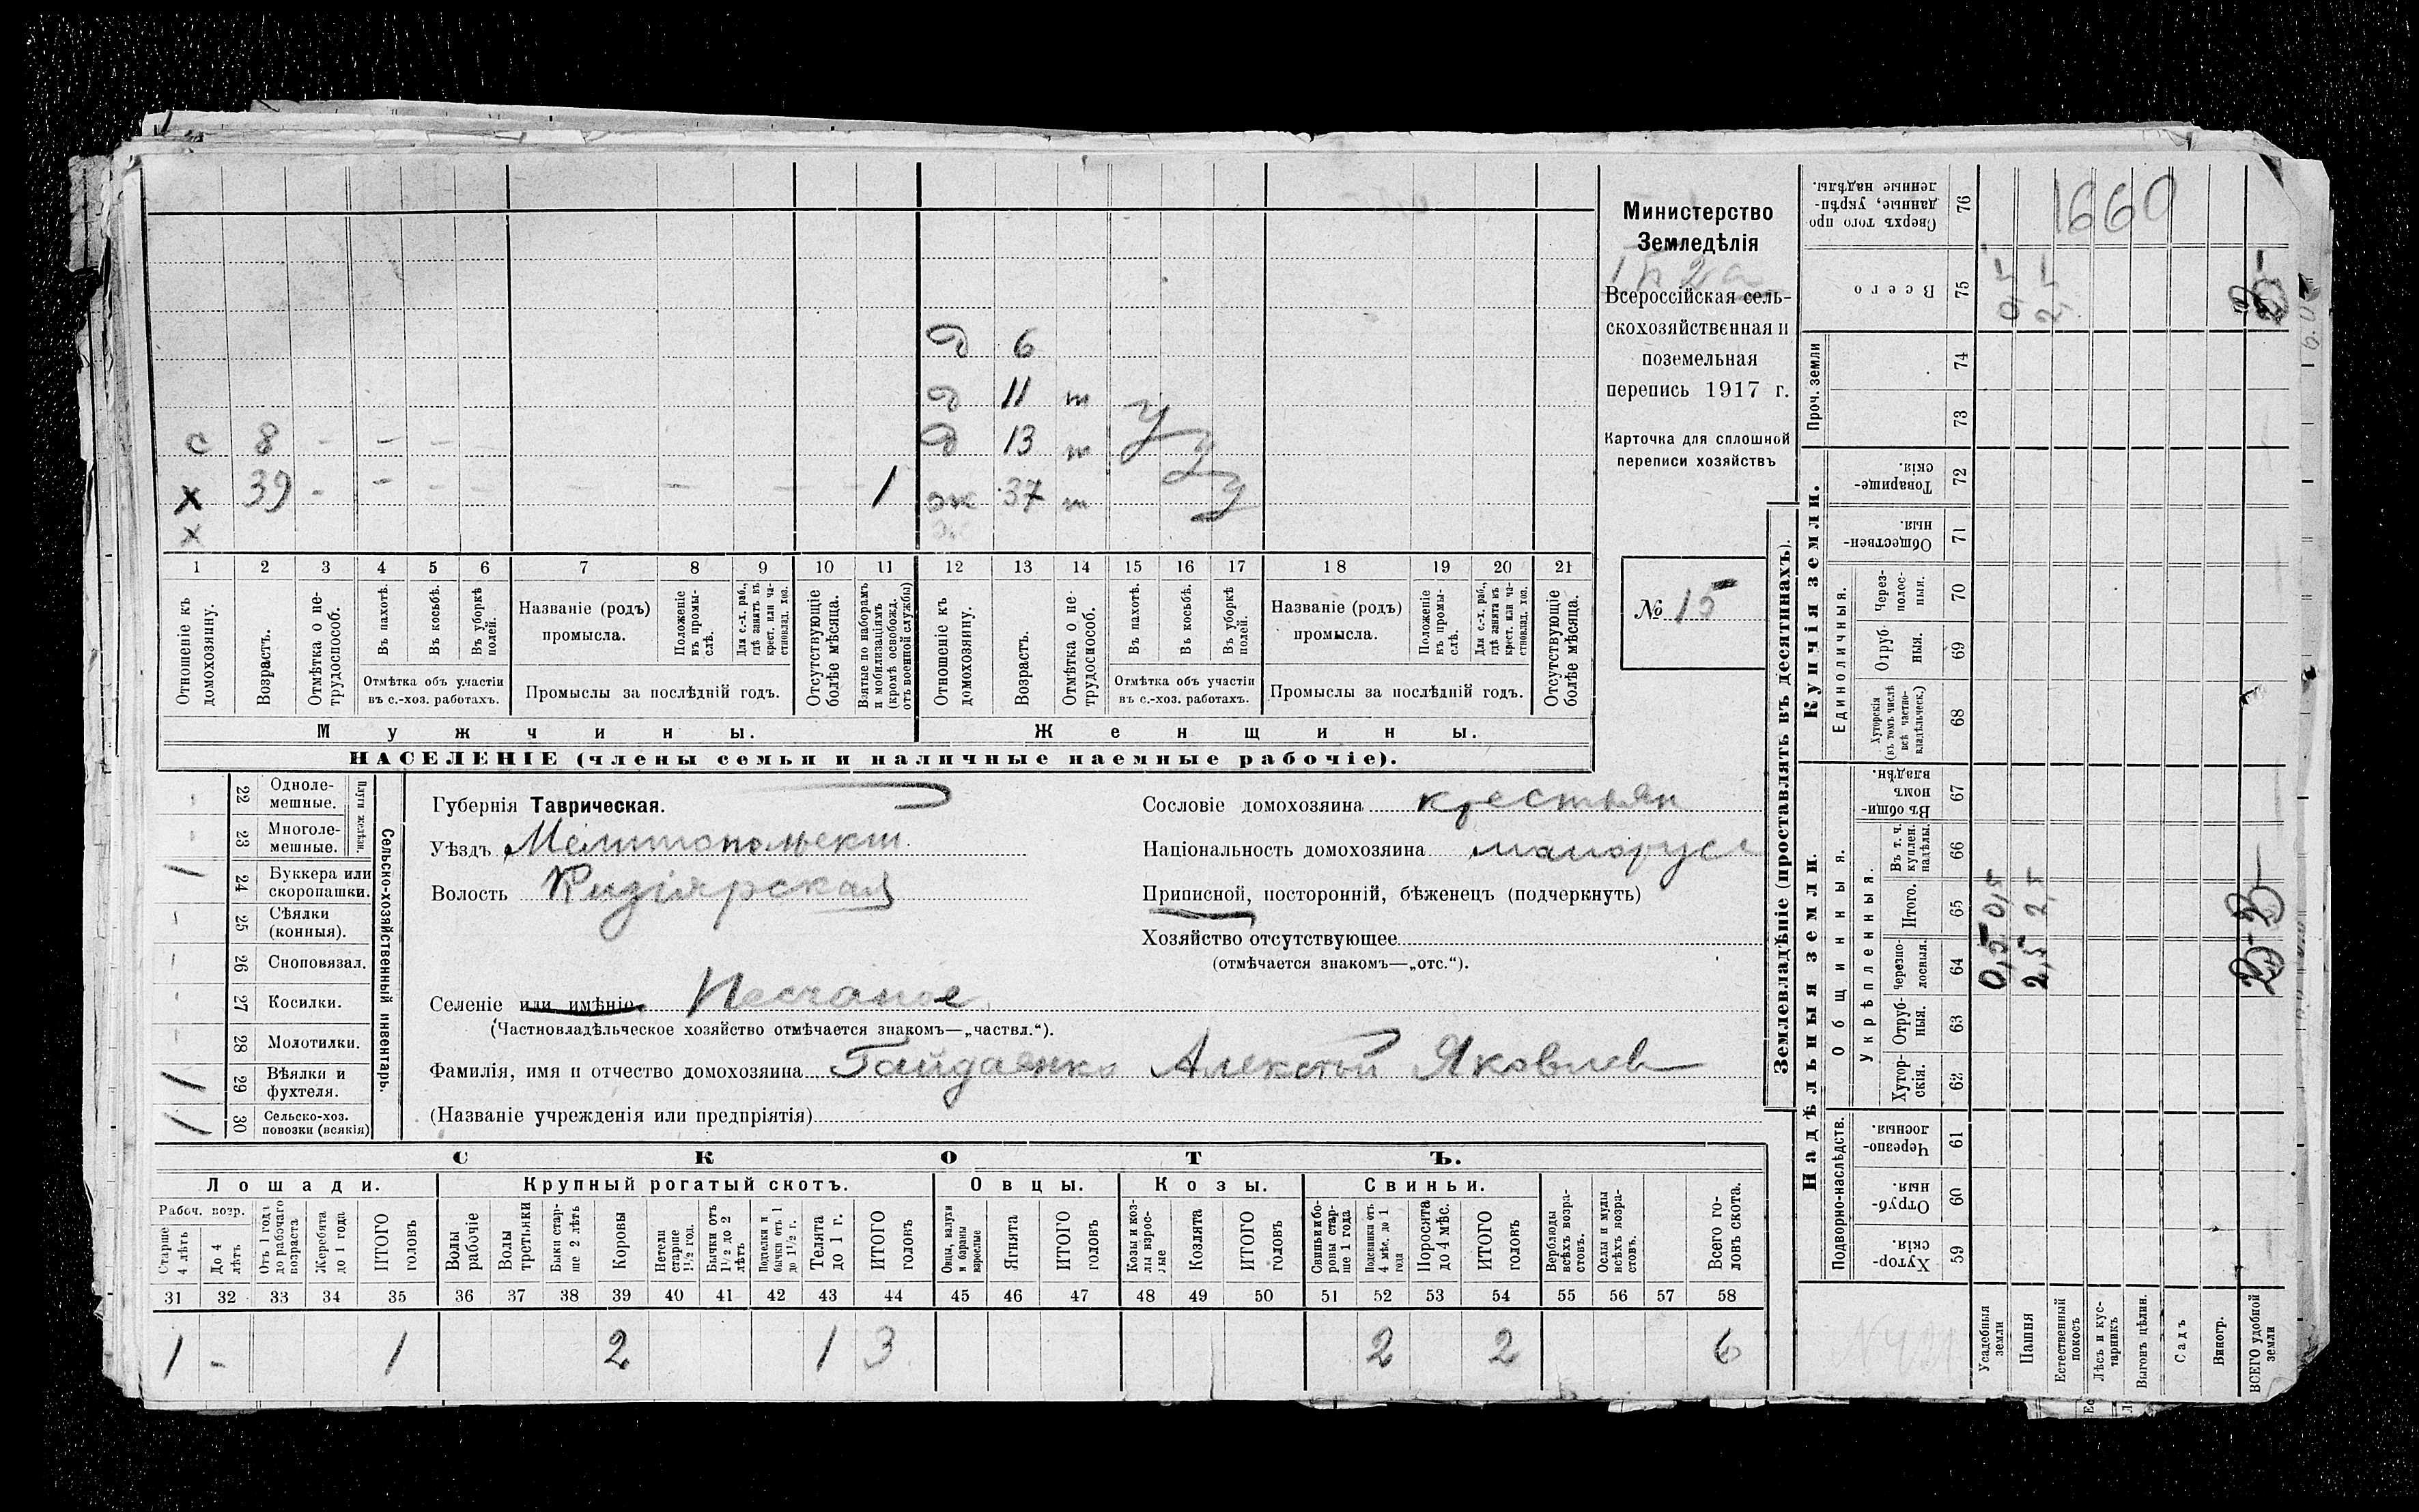 Министерство
Земледѣлія
Всероссійская сель-
скохозяйственная и
поземельная
перепись 1917 г.
Карточка для сплошной
переписи хозяйствъ
№ 15
д 6
д 11 т у
с 8 - - - д 13 т у
х 39 - - - - - - - - 1 ж 37 т у
х
1 2 3 4 5 6 7 8 9 10 11 12 13 14 15 16 17 18 19 20 21
Отношеніе къ домохозяину.
Возрастъ.
Отмѣтка о нетрудоспособ.
Въ пахотѣ.
Въ косьбѣ.
Въ уборкѣ полей.
Отмѣтка объ участіи
въ с.-хоз. работахъ.
Названіе (родъ)
промысла.
Положеніе въ промыслѣ.
Для с.-х. раб., гдѣ занятъ въ крест. или частновлад. хоз.
Промыслы за послѣдній годъ.
Отсутствующіе болѣе мѣсяца.
Взятые по наборамъ и мобилизаціямъ (кромѣ освобожд. отъ военной службы)
Отношеніе къ домохозяину.
Возрастъ.
Отмѣтка о нетрудоспособ.
Въ пахотѣ.
Въ косьбѣ.
Въ уборкѣ полей.
Отмѣтка объ участіи
въ с.-хоз. работахъ.
Названіе (родъ)
промысла.
Положеніе въ промыслѣ.
Для с.-х. раб., гдѣ занята въ крест. или частновлад. хоз.
Промыслы за послѣдній годъ.
Отсутствующіе болѣе мѣсяца.
Мужчины. Женщины.
НАСЕЛЕНІЕ (члены семьи и наличные наемные рабочіе).
Сельско-хозяйственный инвентарь.
Плуги желѣзн.
- 22 Одноле-
мешные.
- 23 Многоле-
мешные.
1 24 Буккера или
скоропашки.
- 25 Сѣялки
(конныя).
- 26 Сноповязал.
- 27 Косилки.
- 28 Молотилки.
1 29 Вѣялки и
фухтеля.
1 30 Сельско-хоз.
повозки (всякія)
Губернія Таврическая.
Уѣздъ Мелитопольскій
Волость Кизіярская
Селеніе или имѣніе Песчаное
(Частновладѣльческое хозяйство отмѣчается знакомъ—„частвл.“).
Сословіе домохозяина крестьян
Національность домохозяина малорусс
Приписной, посторонній, бѣженецъ (подчеркнуть)
Хозяйство отсутствующее
(отмѣчается знакомъ—„отс.“).
Фамилія, имя и отчество домохозяина Гайдаенко Алексѣй Яковлев
(Названіе учрежденія или предпріятія)
СКОТЪ.
Лошади. Крупный рогатый скотъ. Овцы. Козы. Свиньи.
Рабоч. возр.
Старше 4 лѣтъ
До 4 лѣтъ
Отъ 1 года до рабочаго возраста
Жеребята до 1 года
ИТОГО головъ
Волы рабочіе
Волы третьяки
Быки старше 2 лѣтъ
Коровы
Нетели старше 1½ год.
Бычки отъ 1½ до 2 лѣтъ
Подтелки и бычки отъ 1 до 1½ г.
Телята до 1 г.
ИТОГО головъ
Овцы, валухи и бараны взрослые
Ягнята
ИТОГО головъ
Козы и козлы взрослые
Козлята
ИТОГО головъ
Свиньи и боровы старше 1 года
Подсвинки отъ 4 мѣс. до 1 года
Поросята до 4 мѣс.
ИТОГО головъ
Верблюды всѣхъ возрастовъ.
Ослы и мулы всѣхъ возрастовъ.
Всего головъ скота.
31 32 33 34 35 36 37 38 39 40 41 42 43 44 45 46 47 48 49 50 51 52 53 54 55 56 57 58
1 - 1 2 1 3 2 2 6
Землевладѣніе (проставлять въ десятинахъ).
Надѣльныя земли. Купчія земли.
Подворно-наслѣдств.
Общинныя.
Укрѣпленныя.
Единоличныя.
Проч. земли
59 Хуторскія.
60 Отрубныя.
61 Черезполосныя.
62 Хуторскія.
63 Отрубныя.
64 Черезполосныя.
65 Итого.
66 Въ т. ч. куплен. надѣлы.
67 Въ общинномъ владѣн.
68 Хуторскія (въ томъ числѣ всѣ частновладѣльческ.)
69 Отрубныя.
70 Черезполосныя.
71 Общественныя.
72 Товарищескія.
73
74
75 Всего
76 Сверхъ того проданные, укрѣпленные надѣлы.
Усадебныя земли 0,5 0,5 0,5
Пашня 2,5 2,5 2,5
Естественный покосъ
Лѣсъ и кустарникъ
Выгонъ цѣлин.
Садъ
Виногр.
ВСЕГО удобной земли
1660